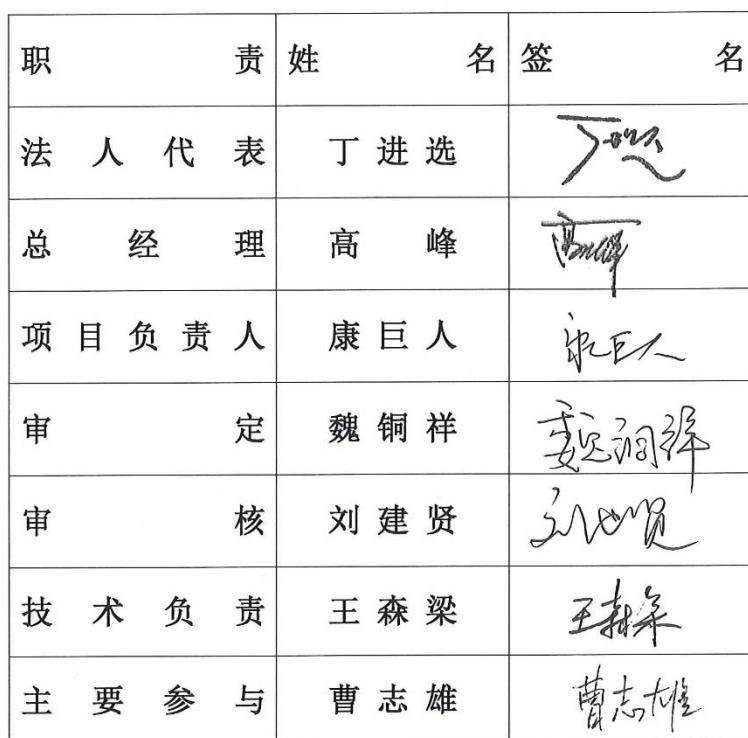 职责 姓名 签名
法人代表 丁进选 丁进选
总经理 高峰 高峰
项目负责人 康巨人 康巨人
审定 魏铜祥 魏铜祥
审核 刘建贤 刘建贤
技术负责 王森梁 王森梁
主要参与 曹志雄 曹志雄